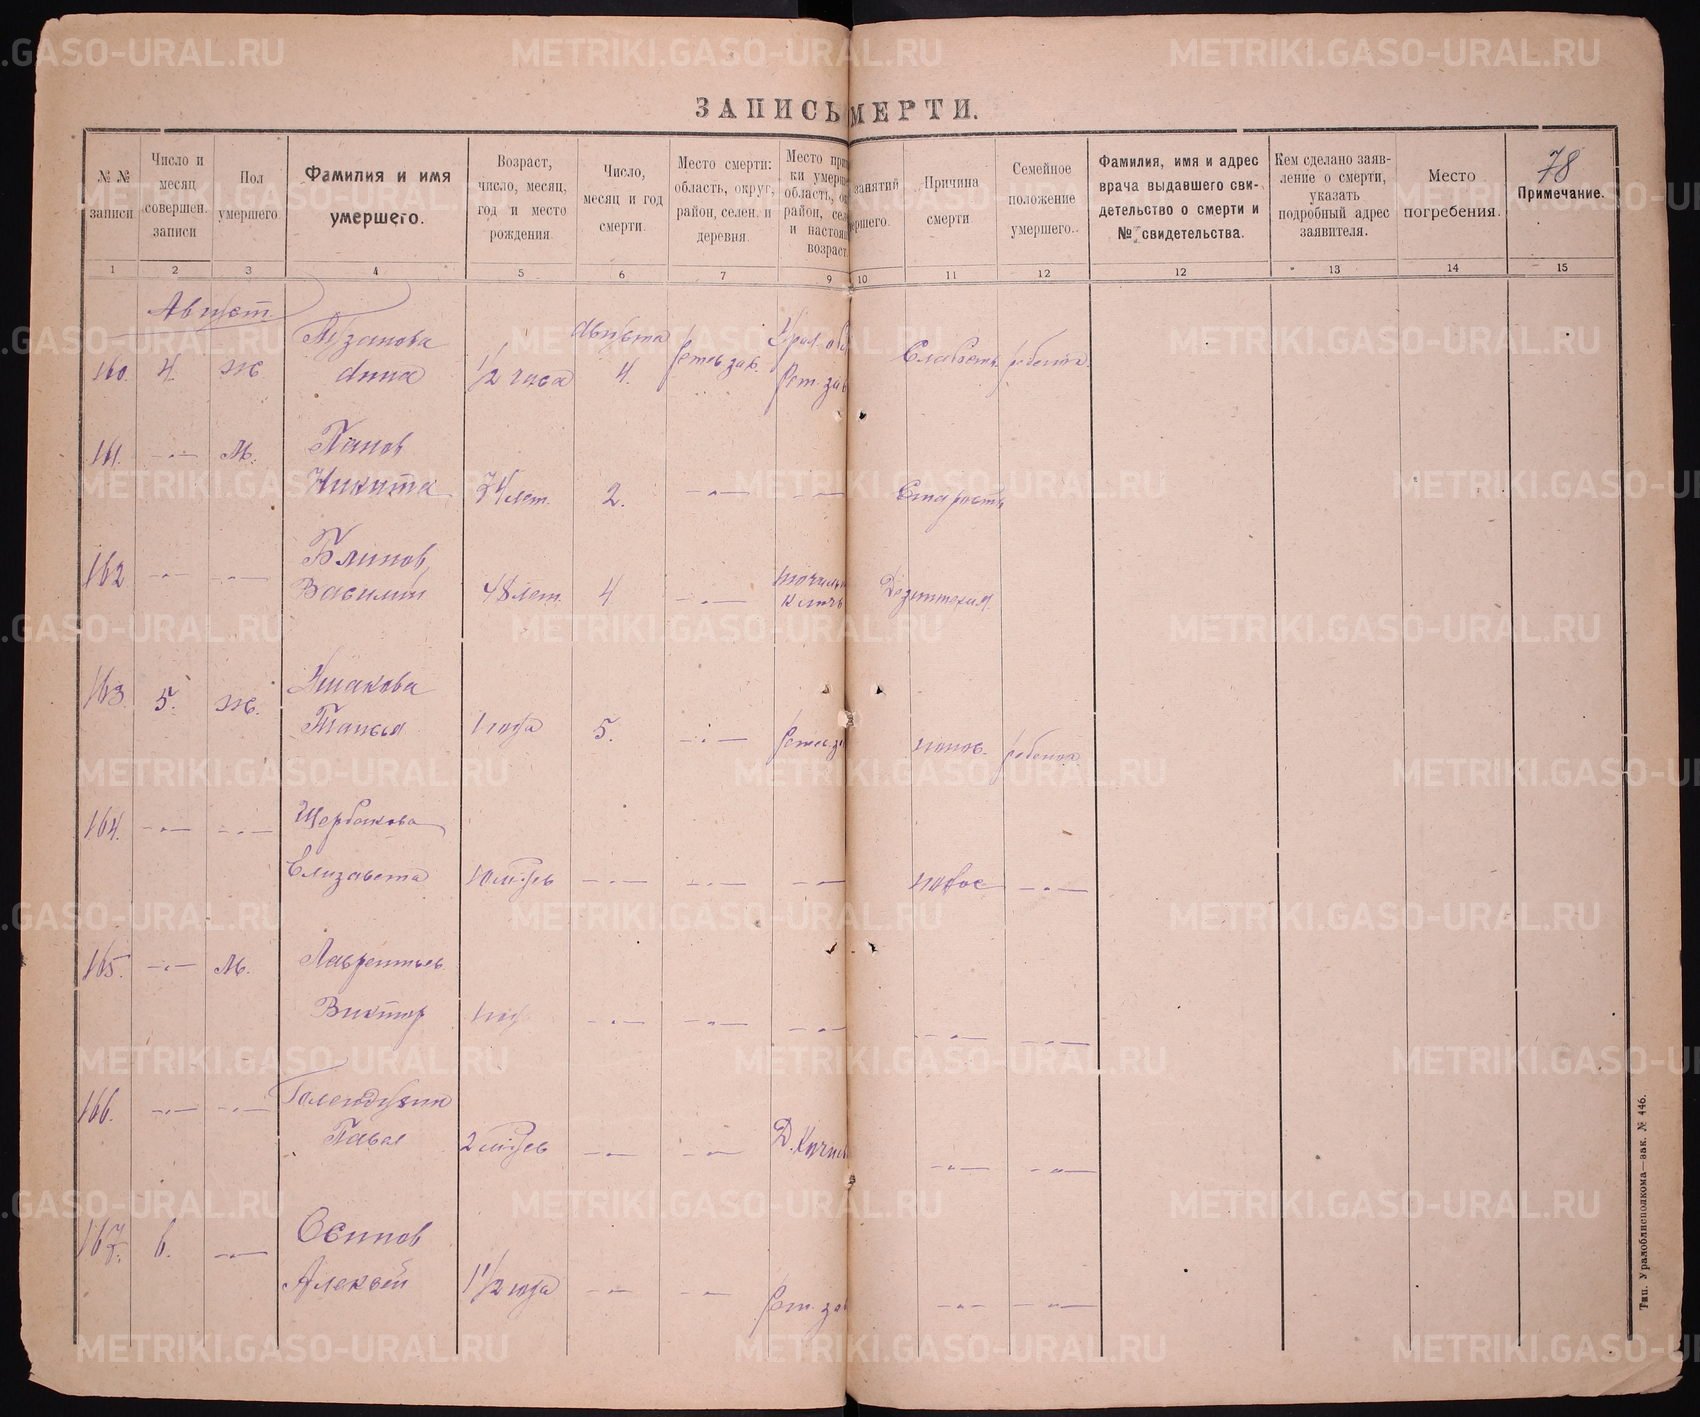 ЗАПИСЬ МЕРТИ.
78
№ № записи
Число и месяц совершен. записи
Пол умершего
Фамилия и имя умершего.
Возраст, число, месяц, год и место рождения.
Число, месяц и год смерти.
Место смерти: область, округ, район, селен. и деревня.
Место при
ки умерш
область, о
район, сел
и настоя
возраст
занятий
ершего.
Причина смерти
Семейное положение умершего.
Фамилия, имя и адрес врача выдавшего свидетельство о смерти и № свидетельства.
Кем сделано заявление о смерти, указать подробный адрес заявителя.
Место погребения.
Примечание.
1 2 3 4 5 6 7 9 10 11 12 12 13 14 15
Август
160. 4. ж. Анна 1/2 часа Августа 4. Слабость ребенка
161. —"— м. Панов
Никита 74 лет. 2. —"— —"— Старость
162 —"— —"— Блинов
Василий 48 лет. 4 —"— Дизентерия.
163. 5. ж. Ушакова
Таисья 1 года 5. —"— понос. ребенка
164. —"— —"— Щербакова
Елизавета 10 м-цев —"— —"— —"— понос —"—
165. —"— м. Лаврентьев
Виктор 1 год —"— —"— —"— —"— —"—
166. —"— —"— Голендухин
Павел 2 м-цев —"— —"— —"— —"—
167. 6. —"— Осипов
Алексей 1 1/2 года —"— —"— —"— —"—
Тип. Уралоблисполкома—зак. № 446.
METRIKI.GASO-URAL.RU